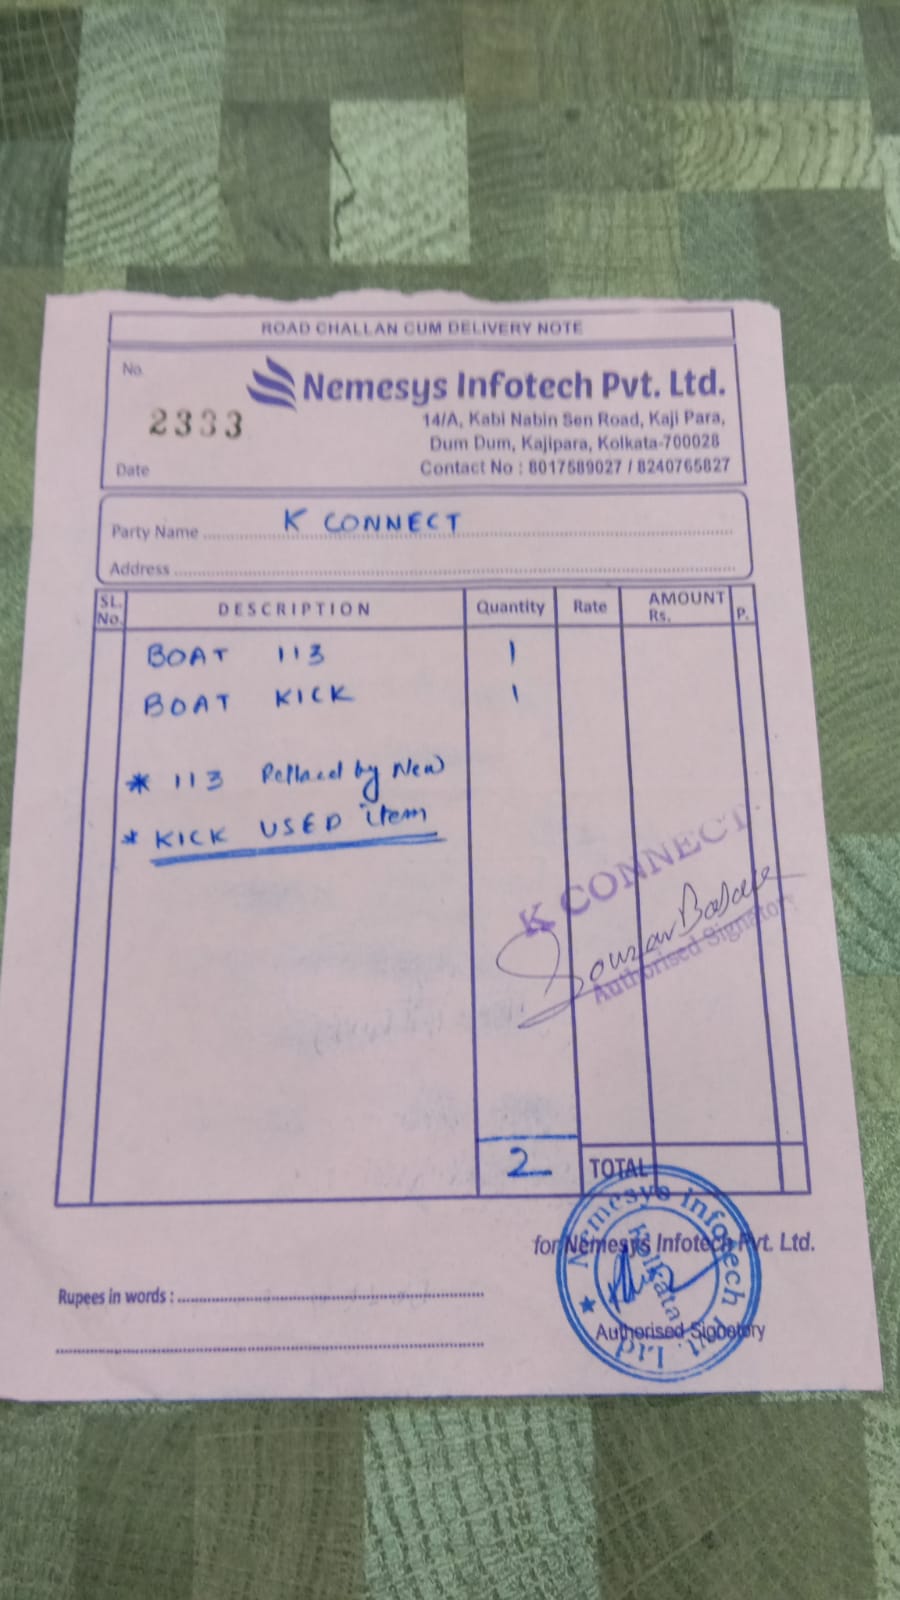 ROAD CHALLAN CUM DELIVERY NOTE
No.
Nemesys Infotech Pvt. Ltd.
2333
14/A, Kabi Nabin Sen Road, Kaji Para,
Dum Dum, Kajipara, Kolkata-700028
Date
Contact No : 8017589027 / 8240765827
Party Name K CONNECT
Address
SL. No. DESCRIPTION Quantity Rate AMOUNT Rs. P.
BOAT 113 1
BOAT KICK 1
* 113 by New
* KICK USED item
K CONNECT
Authorised Signatory
2 TOTAL
for Nemesys Infotech Pvt. Ltd.
Nemesys Infotech Pvt. Ltd. ★
Kolkata
Rupees in words :
Authorised Signatory